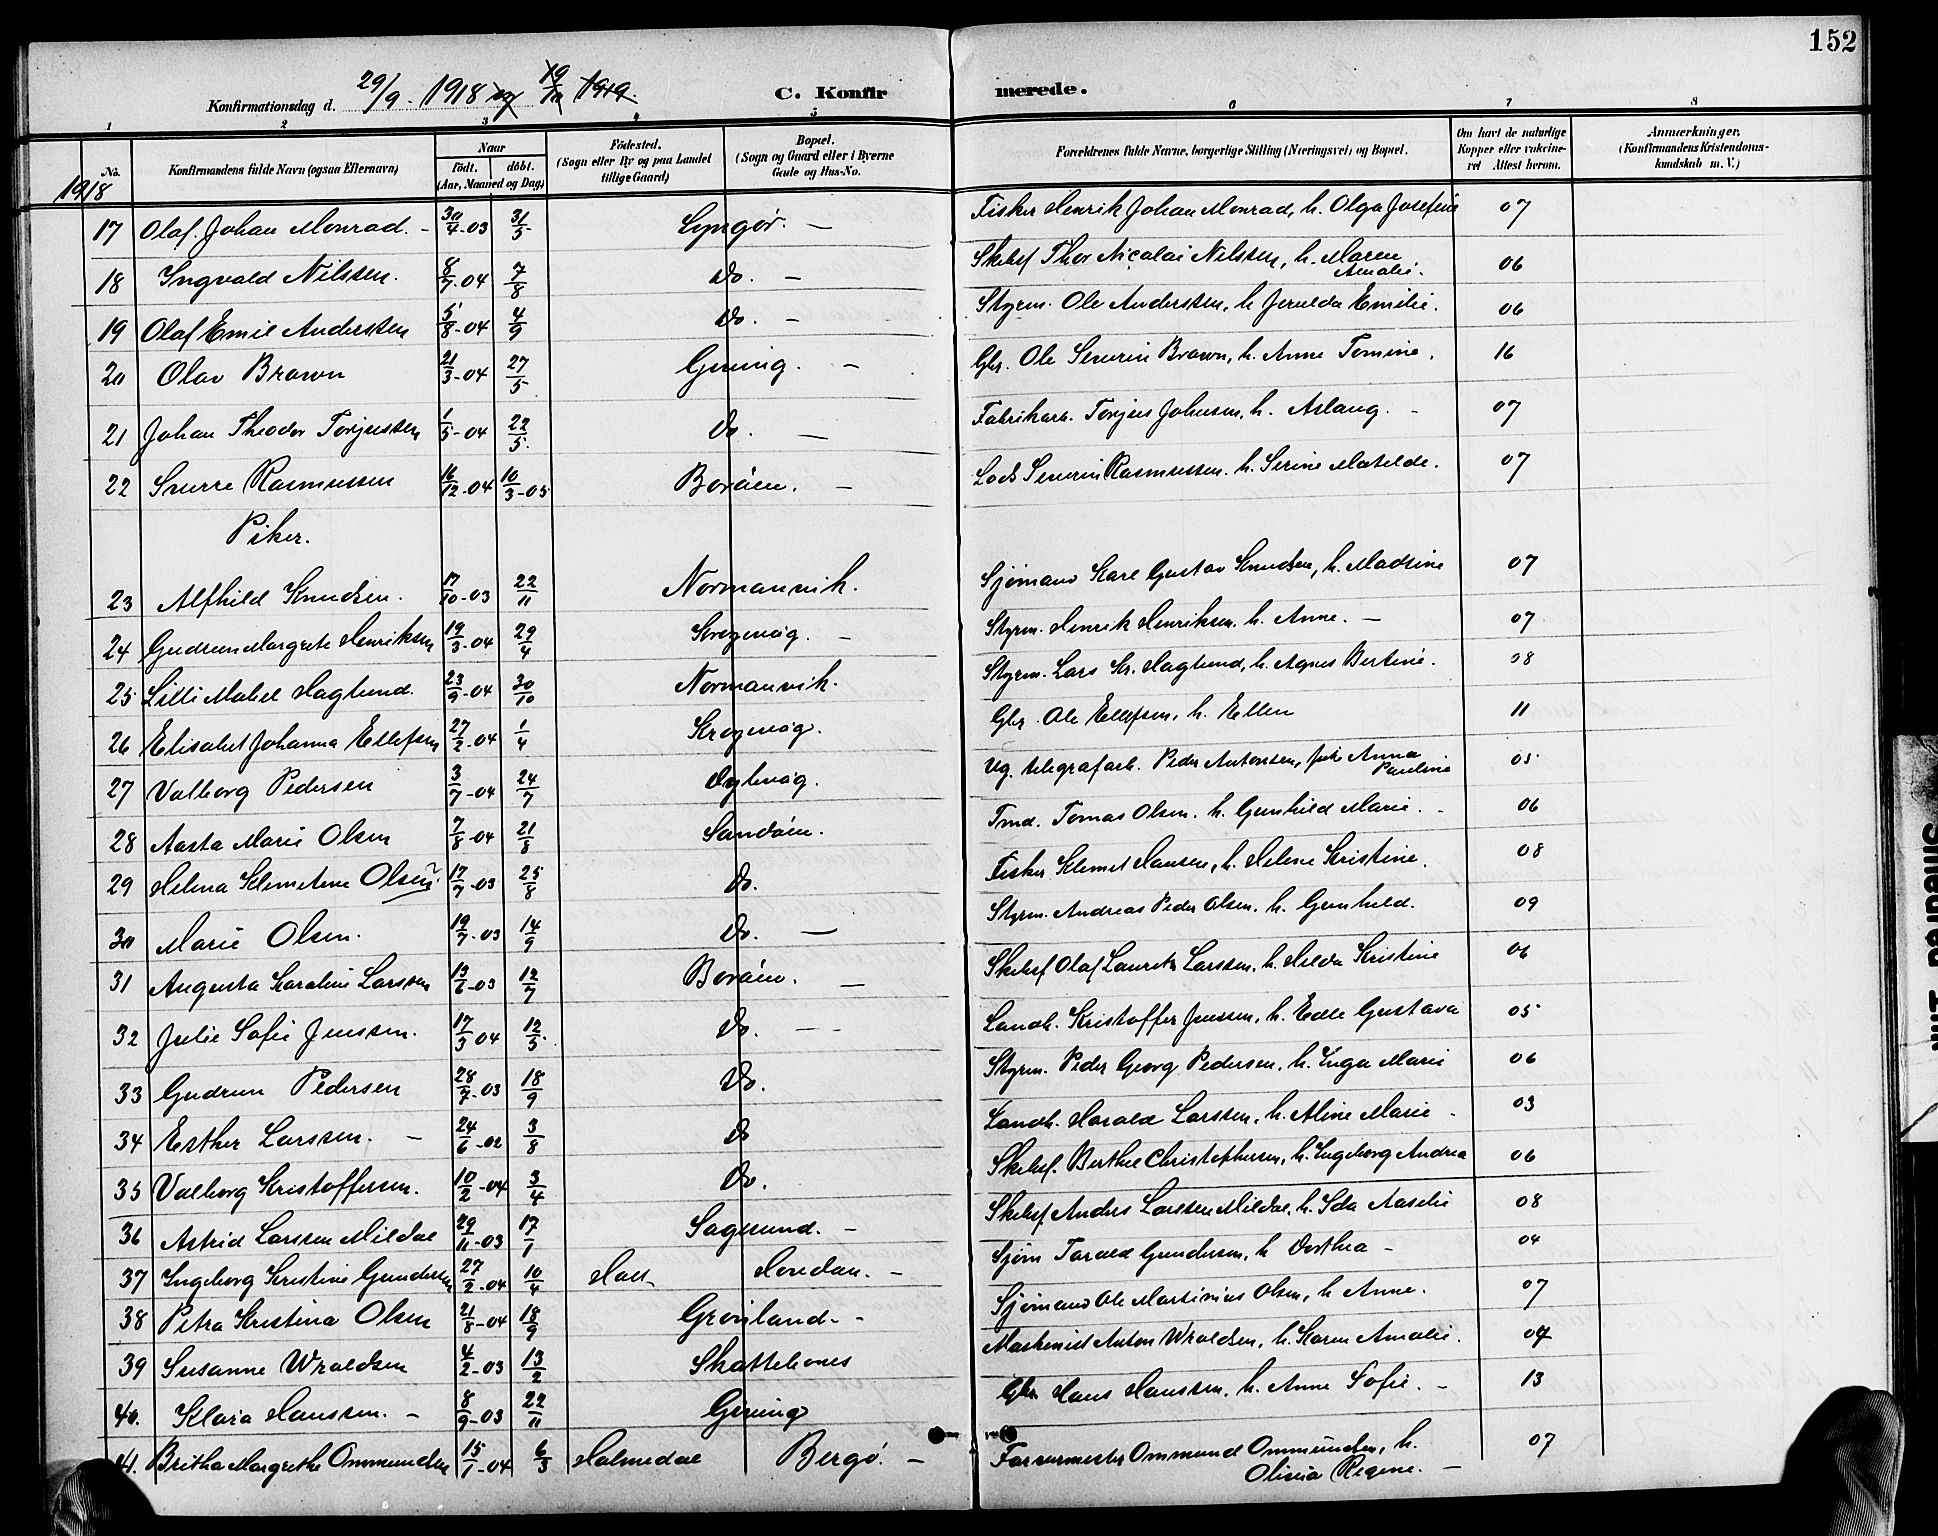 152
Konfirmationsdag d. 29/9. 1918 og 19/10 1919.
C. Konfirmerede.
1 2 3 4 5 6 7 8
No.
Konfirmandens fulde Navn (ogsaa Efternavn)
Naar
Födt. döbt.
(Aar, Maaned og Dag)
Födested.
(Sogn eller By og paa Landet
tillige Gaard)
Bopæl.
(Sogn og Gaard eller i Byerne
Gade og Hus-No.
Forældrenes fulde Navne, borgerlige Stilling (Næringsvei) og Bopæl.
Om havt de naturlige
Kopper eller vakcine-
ret Attest herom.
Anmærkninger.
(Konfirmandens Kristendoms-
kundskab m. V.)
1918
17 Olaf Johan Monrad. - 30/4-03 31/5 Lyngør. - Fisker Henrik Johan Monrad, h. Olga Josefine 07
18 Ingvald Nilssen. 8/7-04 7/8 do. - Skibsf Thor Nicolai Nilssen, h. Maren Amalie. 06
19 Olaf Emil Anderssen 5/8-04 4/9 do. - Styrm. Ole Anderssen, h Jerulda Emilie. 06
20 Olav Brown 21/3-04 27/5 Gjeving. - Gbr. Ole Severin Brown, h. Anne Tomine. 16
21 Johan Theodor Torjussen 1/5-04 22/5. do. - Fabrikarb. Torjus Johnsen, h. Aslaug. - 07
22 Sverre Rasmussen 16/12-04 10/3-05 Borøen. - Lods Severin Rasmussen. h. Serine Matilde. 07
Piker.
23 Alfhild Knudsen. 17/10-03 22/11 Normanvik. Sjømand Karl Gustav Knudsen, h. Madsine 07
24 Gudrun Margrete Henriksen 19/3-04 29/4 Krogevåg. - Styrm. Henrik Henriksen. h. Anne. - 07
25 Lilli Mabel Haglund. 23/9-04 30/10 Normanvik. Styrm. Lars Kr. Haglund, h. Agnes Bertine. 08
26 Elisabet Johanna Ellefsen 27/2-04 1/4 Krogevåg. Gbr. Ole Ellefsen, h. Ellen 11
27 Valborg Pedersen 3/7-04 24/7 Dybvåg. Ug. telegrafarb. Peder Antonsen, pike Anna Pauline 05
28 Aasta Marie Olsen 7/8-04 21/8 Sandøen. Tmd. Tomas Olsen. h. Gunhild Marie. - 06
29 Helena Klemetine Olsen? 17/7-03 25/8 do. Fisker Klemet Hansen, h. Helene Kristine. 08
30 Marie Olsen. 19/7-03 14/9 do. - Styrm. Andreas Peder Olsen. h. Gunhild. 09
31 Augusta Karoline Larssen 13/6-03 12/7 Borøen. - Skibsf Olaf Lauritz Larssen, h. Hilda Kristine 06
32 Julie Sofie Jenssen. 17/3 04 12/5. do. - Landh. Kristoffer Jenssen, h. Edle Gustava 05
33 Gudrun Pedersen 28/7-03 18/9 do. Styrm. Peder Georg Pedersen, h. Inga Marie 06
34 Esther Larssen. - 24/6-02 3/8 do Landh. Harald Larssen, h. Aline Marie - 03
35 Valborg Kristoffersen. 10/2-04 3/4 do. Skibsf. Berthel Christophersen, h. Ingeborg Andrea 06
36 Astrid Larssen Mildal 29/11-03 17/1 Sagesund. - Skibsf Anders Larssen Mildal, h. Ida Aaselie 08
37 Ingeborg Kristine Gundersen 27/2-04 10/4 Holt Hovedan. - Sjøm Tarald Gundersen, h Dorthea - 04
38 Petra Kristina Olsen 21/8-04 18/9 Grønland. - Sjømand Ole Martinius Olsen, h Anne. 07
39 Susanne Wroldsen 4/2-03 13/2 Skottebones Maskinist Anton Wroldsen, h. Karen Amalie. 07
40. Klara Hanssen. - 8/9-03 22/11 Gjeving Gbr. Hans Hanssen, h. Anne Sofie. - 13
41. Britha Margrethe Ommundsen 15/1-04 6/3 Holmedal Bergø. - Farvermester Ommund Ommundsen, h. Olivia Regine. - 07